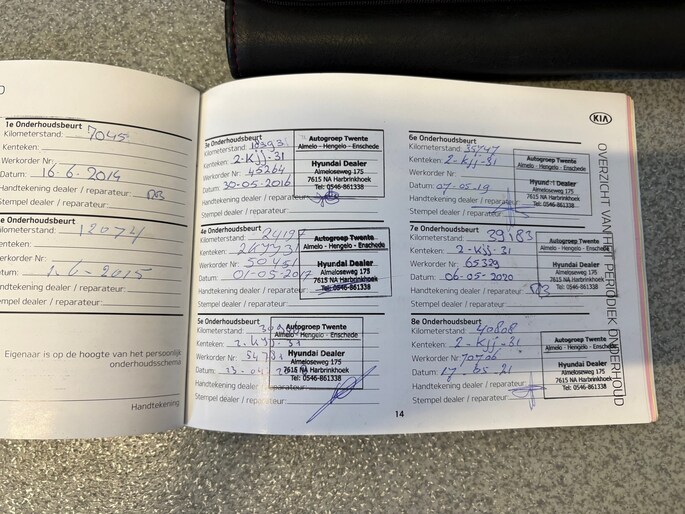 1e Onderhoudsbeurt
Kilometerstand: 7045
Kenteken:
Werkorder Nr:
Datum: 16-6-2014
Handtekening dealer / reparateur:
Stempel dealer / reparateur:
e Onderhoudsbeurt
Kilometerstand: 12074
Kenteken:
Werkorder Nr:
Datum: 1-6-2015
Handtekening dealer / reparateur:
Stempel dealer / reparateur:
Eigenaar is op de hoogte van het persoonlijk
onderhoudsschema
Handtekening
3e Onderhoudsbeurt
Kilometerstand:
Kenteken: 2-Kjj-31
Werkorder Nr: 45264
Datum: 30-05-2016
Handtekening dealer / reparateur:
Stempel dealer / reparateur:
Autogroep Twente
Almelo - Hengelo - Enschede
Hyundai Dealer
Almeloseweg 175
7615 NA Harbrinkhoek
Tel: 0546-861338
4e Onderhoudsbeurt
Kilometerstand: 24197
Kenteken: 2KJJ31
Werkorder Nr: 50451
Datum: 01-05-2017
Handtekening dealer / reparateur:
Stempel dealer / reparateur:
Autogroep Twente
Almelo - Hengelo - Enschede
Hyundai Dealer
Almeloseweg 175
7615 NA Harbrinkhoek
Tel: 0546-861338
5e Onderhoudsbeurt
Kilometerstand:
Kenteken: 2-KJJ-31
Werkorder Nr: 54731
Datum:
Handtekening dealer / reparateur:
Stempel dealer / reparateur:
Autogroep Twente
Almelo - Hengelo - Enschede
Hyundai Dealer
Almeloseweg 175
7615 NA Harbrinkhoek
Tel: 0546-861338
6e Onderhoudsbeurt
Kilometerstand: 35747
Kenteken: 2-Kjj-31
Werkorder Nr:
Datum: 07-05-19
Handtekening dealer / reparateur:
Stempel dealer / reparateur:
Autogroep Twente
Almelo - Hengelo - Enschede
Hyundai Dealer
Almeloseweg 175
7615 NA Harbrinkhoek
Tel: 0546-861338
7e Onderhoudsbeurt
Kilometerstand: 39183
Kenteken: 2-Kjj-31
Werkorder Nr: 65329
Datum: 06-05-2020
Handtekening dealer / reparateur:
Stempel dealer / reparateur:
Autogroep Twente
Almelo - Hengelo - Enschede
Hyundai Dealer
Almeloseweg 175
7615 NA Harbrinkhoek
Tel: 0546-861338
8e Onderhoudsbeurt
Kilometerstand: 40808
Kenteken: 2-Kjj-31
Werkorder Nr: 70706
Datum: 17-05-21
Handtekening dealer / reparateur:
Stempel dealer / reparateur:
Autogroep Twente
Almelo - Hengelo - Enschede
Hyundai Dealer
Almeloseweg 175
7615 NA Harbrinkhoek
Tel: 0546-861338
14
KIA
OVERZICHT VAN HET PERIODIEK ONDERHOUD